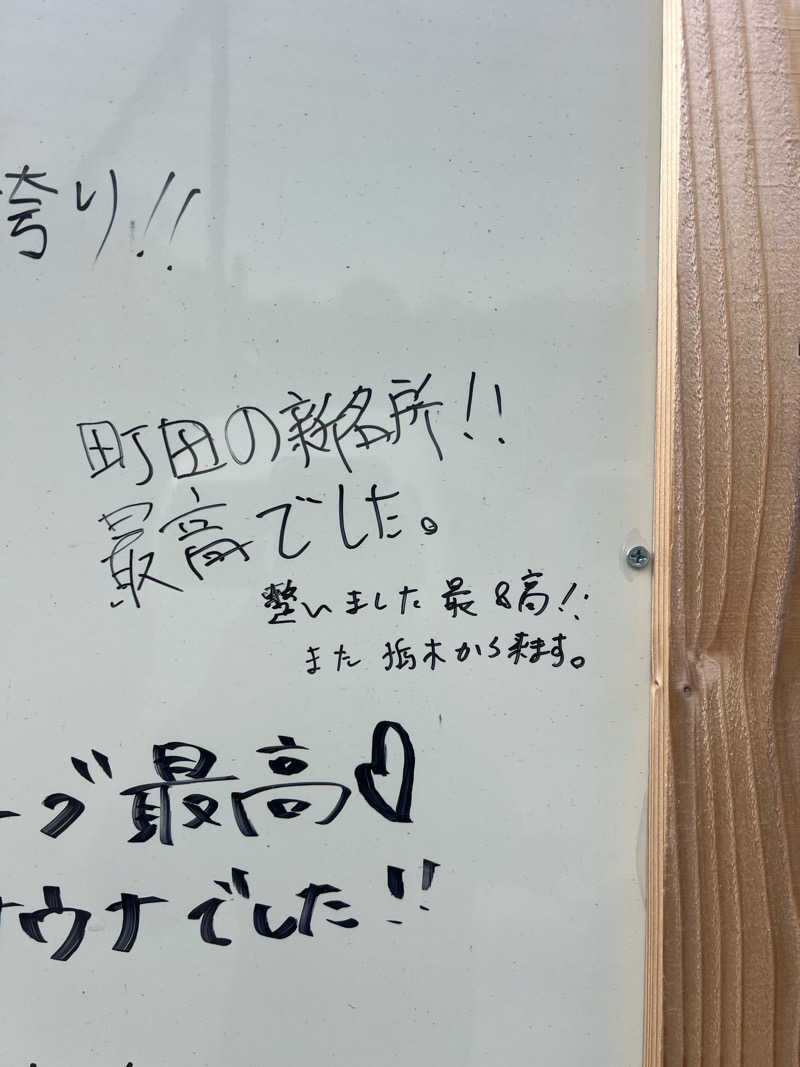 誇り!!
町田の新名所!!
最高でした。
整いました 最&高!!
また 栃木から来ます。
ーブ最高♡
サウナでした!!